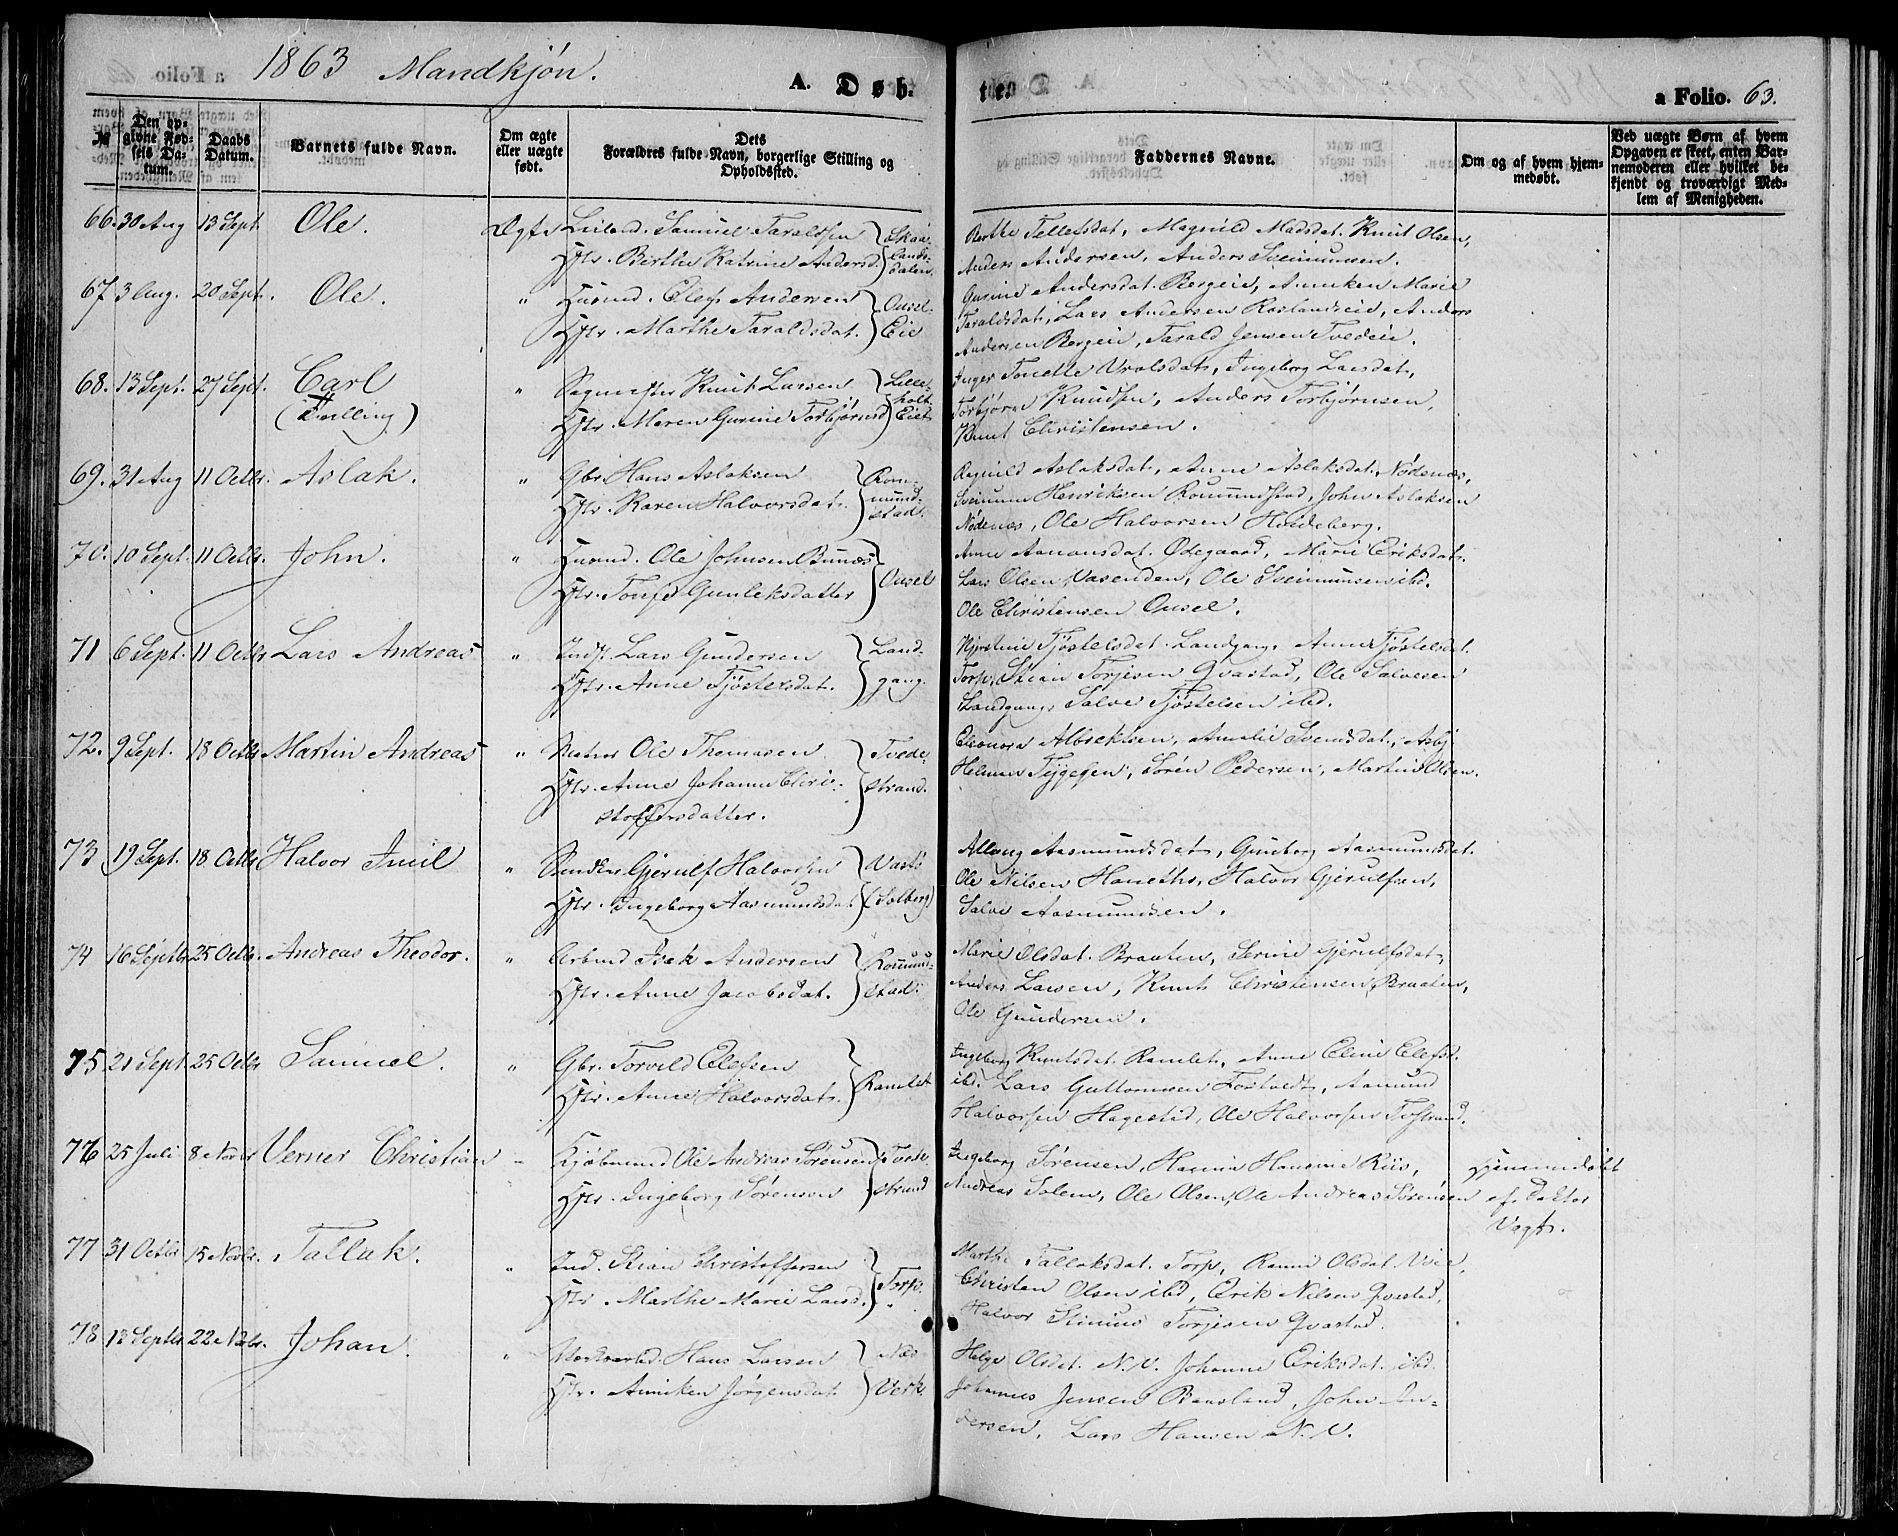 1863 Mandkjøn.
A. Døb-
te.
a Folio. 63.
№
Den opgivne Fødsels Datum.
Daabs Datum.
Barnets fulde Navn.
Om ægte eller uægte født.
Dets Forældres fulde Navn, borgerlige Stilling og Opholdssted.
Faddernes Navne.
Om og af hvem hjemmedøbt.
Ved uægte Børn af hvem Opgaven er skeet, enten Barnemoderen eller hvilket bekjendt og troværdigt Medlem af Menigheden.
66. 30 Aug 13 Sept. Ole. Ægte Samuel Taraldsen
Hstr. Berthe Katrine Andersd. Skaalandsdalen.
Berthe Tellefsdat, Magnild Madsdat. Knut Olsen,
Anders Andersen, Anders Sveinunsen.
67. 3 Aug. 20 Sept. Ole. " Husmd. Olefs Andersen
Hstr. Marthe Taraldsdat. Ousel Eie
Gurine Andersdat. Bergeie, Anniken Marie
Taraldsdat, Lars Andersen Roslandseie, Anders
Andersen Bergeie, Tarald Jensen Tvedeie.
68. 13 Sept. 27 Sept. Carl (Tvilling) " Sagmester Knut Larsen
Hstr. Maren Gurine Torbjørnsd Lilleholt Eiet
Inger Tonette Vrolsdat, Ingeborg Larsdat,
Torbjørn Knudsen, Anders Torbjørnsen,
Knut Christensen.
69. 31 Aug 11 Octbr. Aslak. " Gbr Hans Aslaksen
Hstr. Karen Halvorsdat. Rommundstad.
Ragnild Aslaksdat, Anne Aslaksdat. Nødenæs,
Sveinun Henriksen Romundstad, John Aslaksen
Nødenæs, Ole Halvorsen Hvideberg.
70. 10 Sept. 11 Octbr. John. " Husmd. Ole Johnsen Bunæs
Hstr. Gunleksdatter Ousel
Anne Aanonsdat. Ødegaard, Marie Eriksdat.
Lars Olsen Vasenden, Ole Sveinunsen ibd.
Ole Christensen Ousel.
71 6 Sept. 11 Octbr Lars Andreas " Indst. Lars Gundersen
Hstr. Anne Tjøstelsdat. Landgang.
Kjerstine Tjøstelsdat. Landgang, Anne Tjøstelsdat.
Torp, Stian Torjesen Qvastad, Ole Salvesen
Landgang, Salve Tjøstelsen ibd.
72. 9 Sept. 18 Octbr Martin Andreas " Matros Ole Thomasen
Hstr. Anne Johanne Christoffersdatter. Tvedestrand.
Eleonora Albrektsen, Amalie Svendsdat,
Helman Tygesen, Søren Pedersen, Martin Olsen.
73 19 Sept. 18 Octbr Halvor Imil " Gjerulf Halvorsen
Hstr. Ingeborg Aasmundsdat Vastø (Solberg)
Aasmundsdat, Gunborg Aasmundsdat.
Ole Nilsen Haneths, Halvor Gjerulfsen,
Salve Aasmundsen.
74 16 Septbr 25 Octbr. Andreas Theodor. " Arbmd Isak Andersen
Hstr. Anne Jacobsdat. Romundstad.
Marie Olsdat. Braaten, Serine Gjerulfsdat,
Anders Larsen, Knut Christensen Braaten,
Ole Gundersen.
75. 21 Sept. 25 Octbr Samuel. " Gbr. Torvild Olefsen
Hstr. Anne Halvorsdat. Ramlet
Ingeborg Knutsdat. Ramlet, Anne Eline Olefsd.
ibd. Lars Guttormsen Fostvedt, Aamund
Halvorsen Hagestad, Ole Halvorsen Tofstrand.
76 25 Juli 8 Novbr Verner Christian - Kjøbmand Ole Andreas Sørensen
Hstr. Ingeborg Sørensen Tvedestrand
Ingeborg Sørensen, Hansine Riis,
Andreas Solem, Ole Olsen, Ole Andreas Sørensen
Hjemmedøbt af Doktor Vogt.
77 31 Octbr 15 Novbr. Tallak. " Ind. Stian Christoffersen
Hstr. Marthe Marie Larsd. Torp.
Marthe Tallaksdat. Torp, Olsdat
Christen Olsen ibd, Erik Nilsen Qvastad,
Halvor Torjesen Qvastad.
78 13 Septbr 22 Novbr. Johan. " Hans Larsen
Hstr. Anniken Jørgensdat Næs Verk
Helge Olsdat. N.V. Johanne Eriksdat. ibd.
Johannes Jensen Baasland, John Andersen,
Lars Hansen N.V.